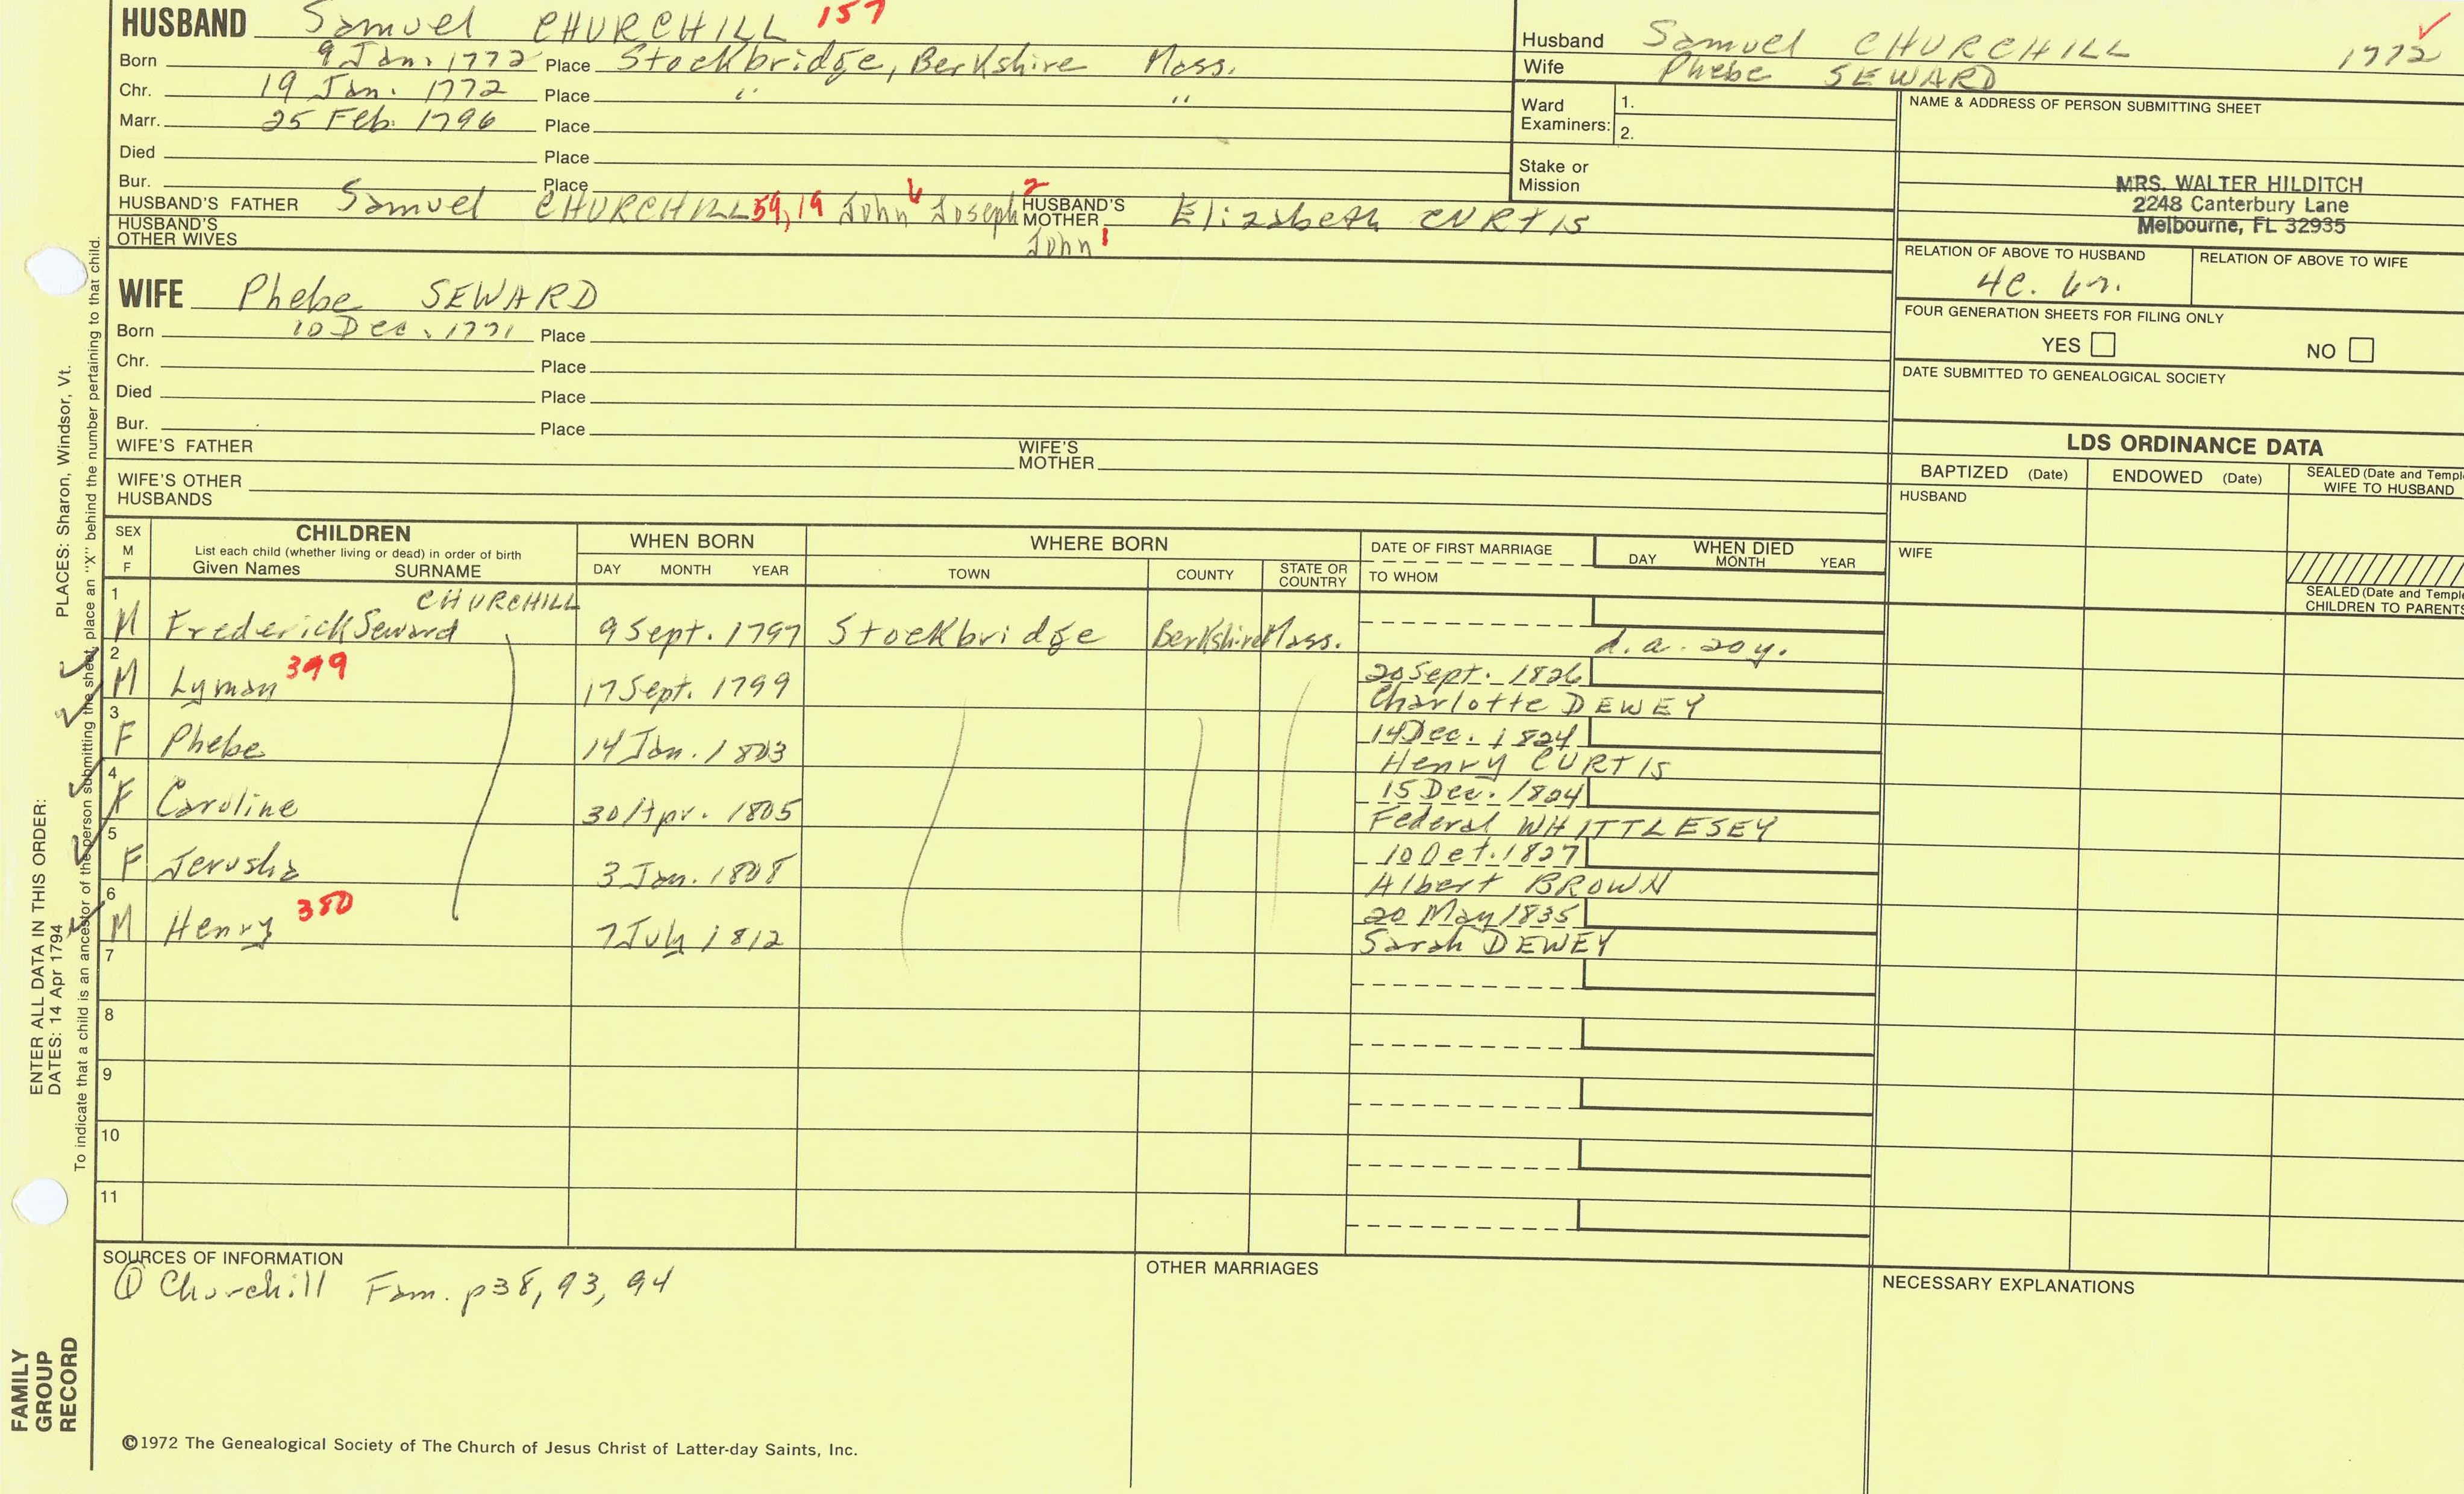 HUSBAND Samuel CHURCHILL 157
Born 9 Jan. 1772 Place Stockbridge, Berkshire Mass.
Chr. 19 Jan. 1772 Place " "
Marr. 25 Feb. 1796 Place
Died Place
Bur. Place
HUSBAND'S FATHER Samuel CHURCHILL 59, 19 John Joseph 2 John 1 HUSBAND'S MOTHER Elizabeth CURTIS
HUSBAND'S OTHER WIVES
Husband Samuel CHURCHILL 1772
Wife Phebe SEWARD
Ward Examiners: 1.
2.
Stake or Mission
NAME & ADDRESS OF PERSON SUBMITTING SHEET
MRS. WALTER HILDITCH
2248 Canterbury Lane
Melbourne, FL 32935
RELATION OF ABOVE TO HUSBAND RELATION OF ABOVE TO WIFE
4C.
FOUR GENERATION SHEETS FOR FILING ONLY
YES NO
DATE SUBMITTED TO GENEALOGICAL SOCIETY
WIFE Phebe SEWARD
Born 10 Dec. 1771 Place
Chr. Place
Died Place
Bur. Place
WIFE'S FATHER WIFE'S MOTHER
WIFE'S OTHER HUSBANDS
LDS ORDINANCE DATA
BAPTIZED (Date) ENDOWED (Date) SEALED (Date and Templ
WIFE TO HUSBAND
HUSBAND
WIFE
SEALED (Date and Templ
CHILDREN TO PARENTS
SEX M F
CHILDREN
List each child (whether living or dead) in order of birth
Given Names SURNAME
WHEN BORN
DAY MONTH YEAR
WHERE BORN
TOWN COUNTY STATE OR COUNTRY
DATE OF FIRST MARRIAGE
TO WHOM
WHEN DIED
DAY MONTH YEAR
CHURCHILL
1 M Frederick Seward 9 Sept. 1797 Stockbridge Berkshire Mass. d. a. 20 y.
2 M Lyman 399 17 Sept. 1799 20 Sept. 1826
Charlotte DEWEY
3 F Phebe 14 Jan. 1803 14 Dec. 1824
Henry CURTIS
4 F Caroline 30 Apr. 1805 15 Dec. 1824
Federal WHITTLESEY
5 F Jerusha 3 Jan. 1808 10 Oct. 1827
Albert BROWN
6 M Henry 380 7 July 1812 20 May 1835
Sarah DEWEY
7
8
9
10
11
SOURCES OF INFORMATION
① Churchill Fam. p38, 93, 94
OTHER MARRIAGES
NECESSARY EXPLANATIONS
©1972 The Genealogical Society of The Church of Jesus Christ of Latter-day Saints, Inc.
FAMILY
GROUP
RECORD
ENTER ALL DATA IN THIS ORDER:
DATES: 14 Apr 1794
PLACES: Sharon, Windsor, Vt.
To indicate that a child is an ancestor of the person submitting the sheet, place an "X" behind the number pertaining to that child.